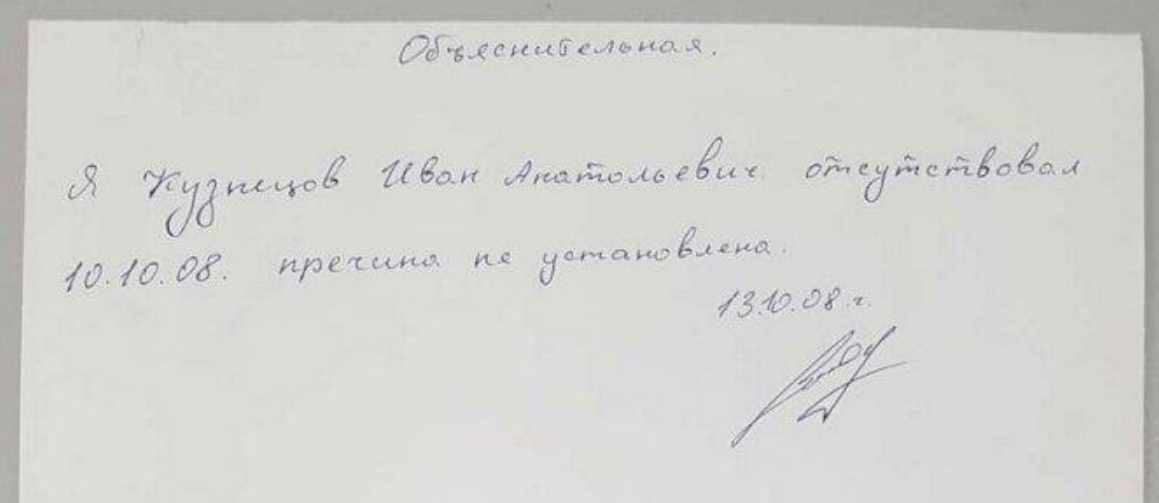 Объяснительная.
Я Кузнецов Иван Анатольевич отсутствовал
10.10.08. пречина не установлена.
13.10.08.г.